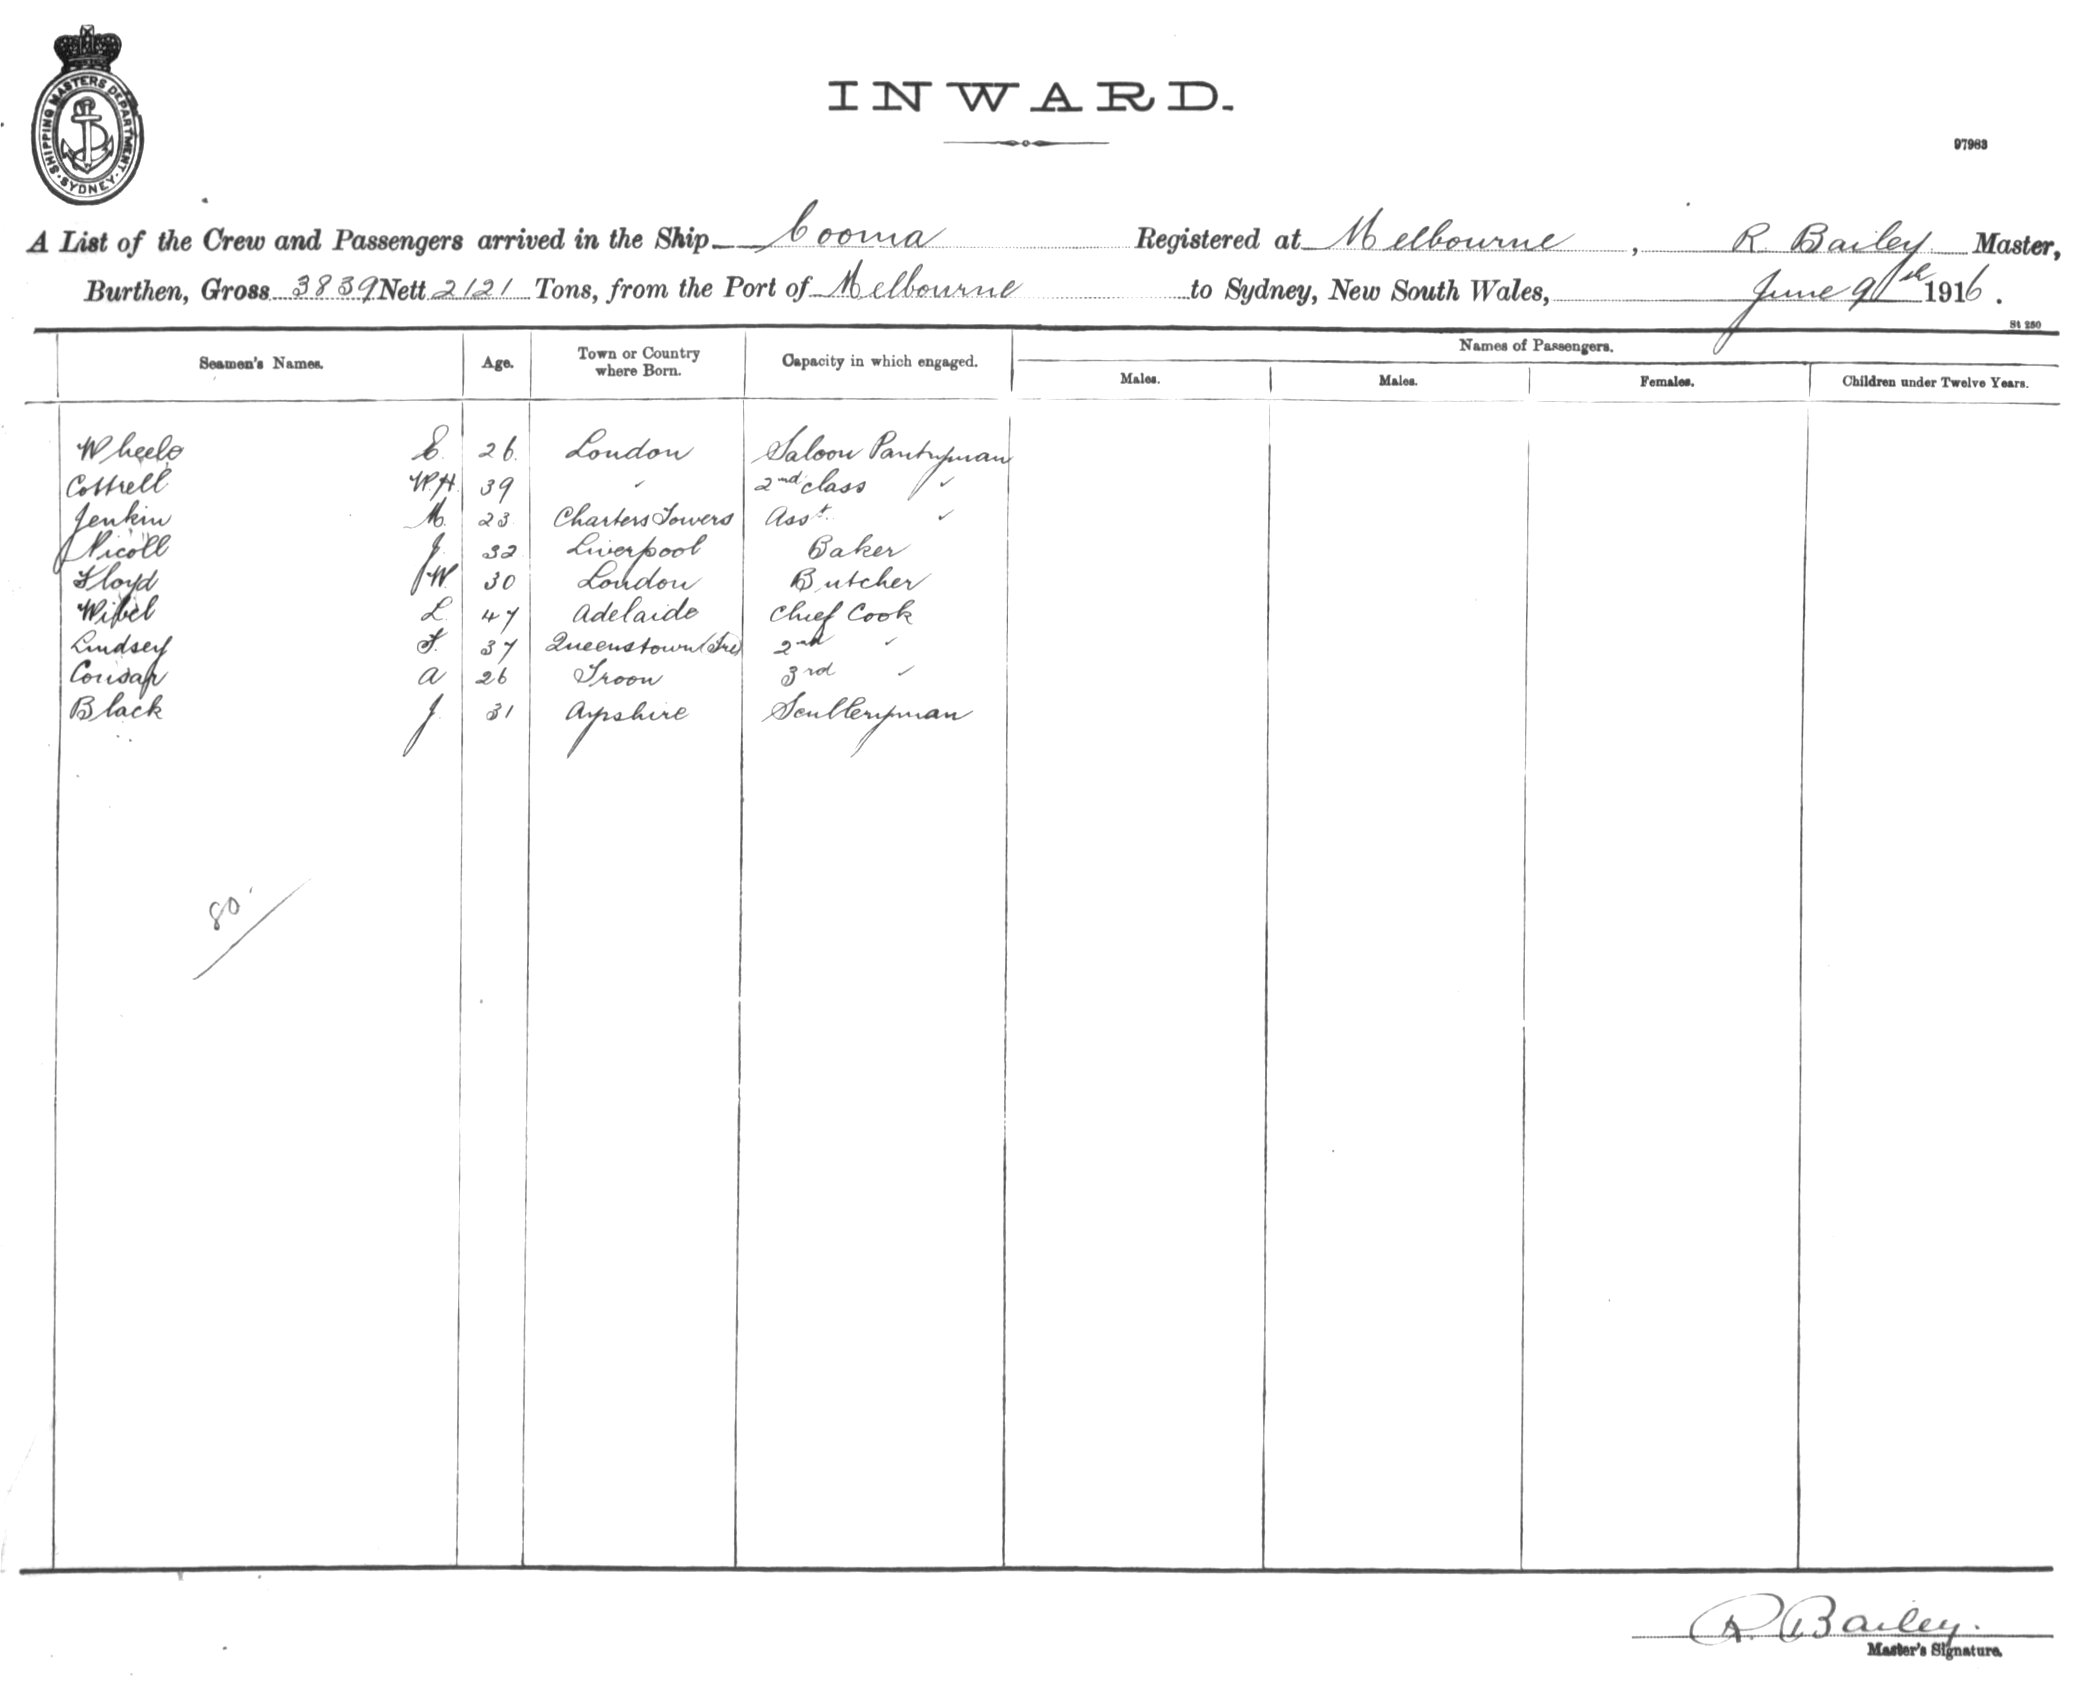 SHIPPING MASTERS DEPARTMENT. SYDNEY.
INWARD.
97963
A List of the Crew and Passengers arrived in the Ship Cooma Registered at Melbourne, R. Bailey Master,
Burthen, Gross 3839 Nett 2121 Tons, from the Port of Melbourne to Sydney, New South Wales, June 9th 1916.
St 280
Seamen's Names. Age. Town or Country where Born. Capacity in which engaged. Names of Passengers.
Males. Males. Females. Children under Twelve Years.
E. 26. London Saloon Pantryman
Cottrell W.H. 39 " 2nd class "
Jenkin M. 23 Charters Towers Asst. "
Nicoll J. 32 Liverpool Baker
Floyd W 30 London Butcher
L. 47 Adelaide Chief Cook
Lindsey F. 37 Queenstown (Ire) 2nd "
A 26 Troon 3rd "
Black J. 31 Ayrshire Sculleryman
80
R. Bailey.
Master's Signature.